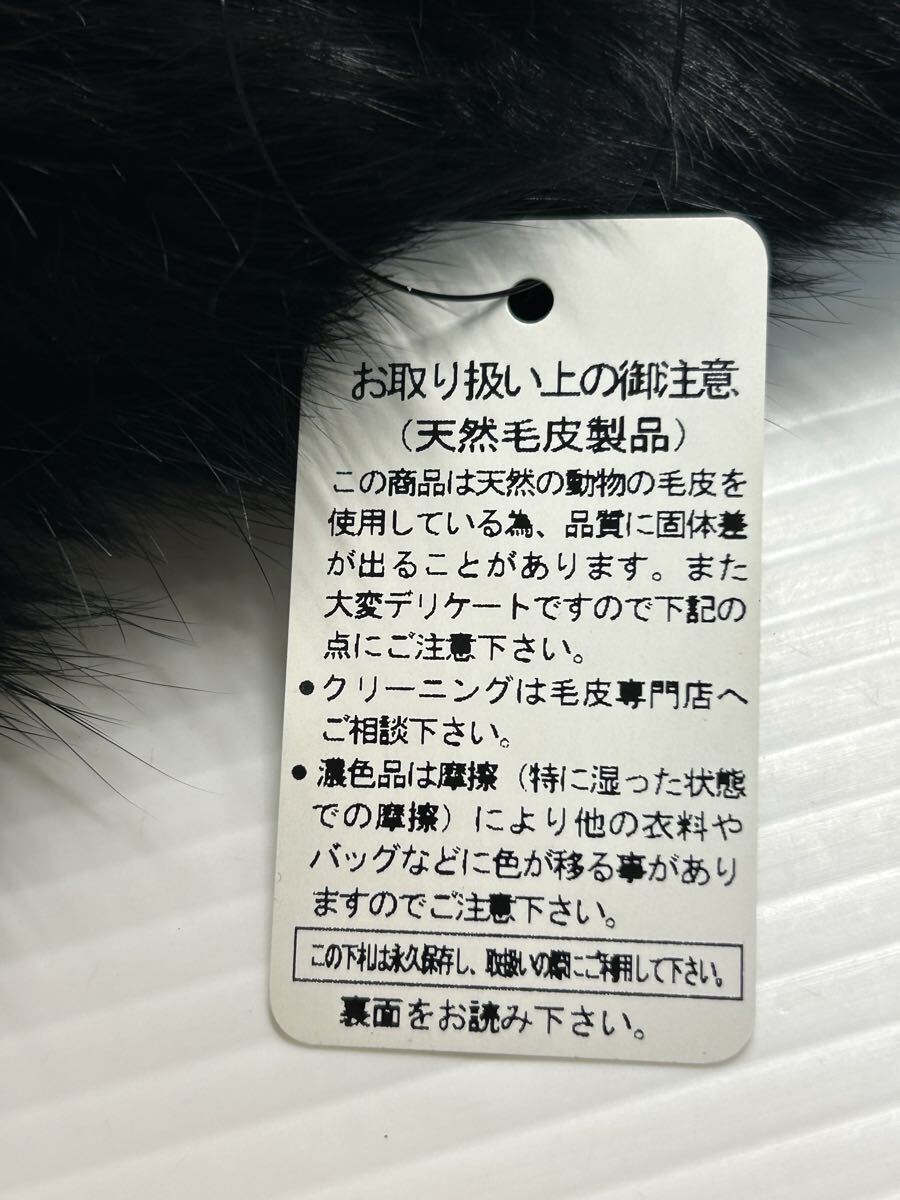 お取り扱い上の御注意
(天然毛皮製品)
この商品は天然の動物の毛皮を
使用している為、品質に固体差
が出ることがあります。また
大変デリケートですので下記の
点にご注意下さい。
●クリーニングは毛皮専門店へ
ご相談下さい。
●濃色品は摩擦(特に湿った状態
での摩擦)により他の衣料や
バッグなどに色が移る事があり
ますのでご注意下さい。
この下札は永久保存し、取扱いの際にご利用して下さい。
裏面をお読み下さい。